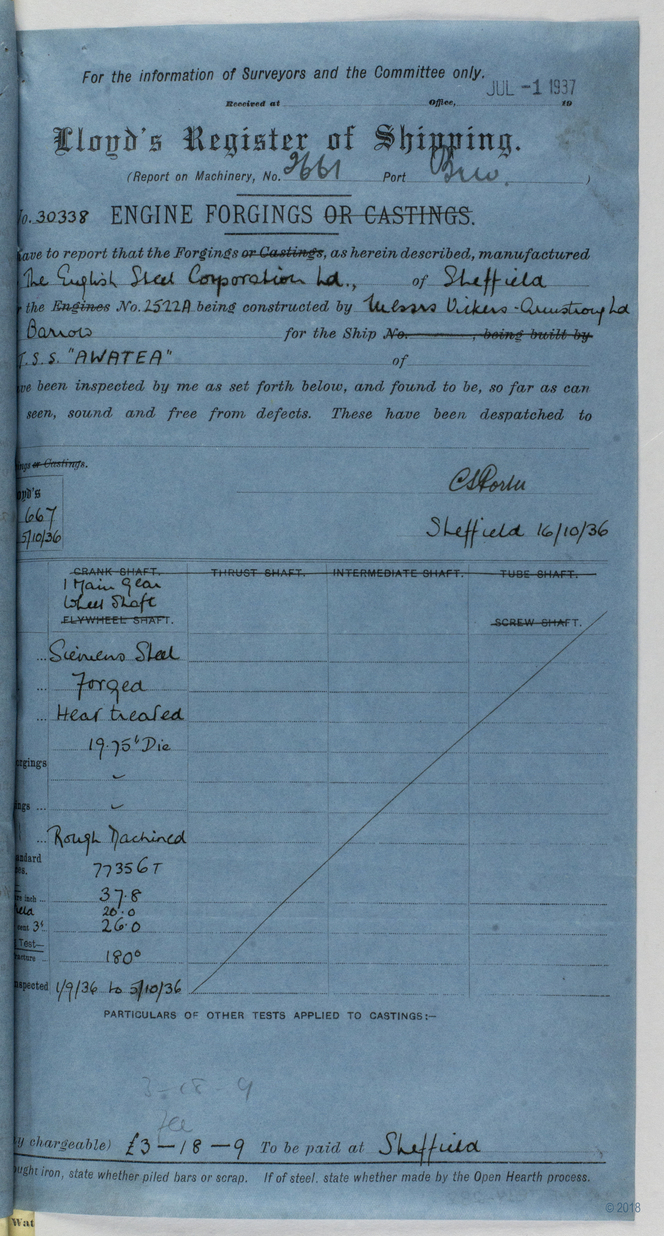 For the information of Surveyors and the Committee only.
JUL -1 1937
Received at Office, 19
Lloyd's Register of Shipping.
(Report on Machinery, No. Port )
No. 30338 ENGINE FORGINGS OR CASTINGS.
ave to report that the Forgings or Castings, as herein described, manufactured
The English Steel Corporation Ld., of Sheffield
the Engines No. 2522A being constructed by Messrs Vickers-Armstrong Ld
Barrow for the Ship No. , being built by
T.S.S. "AWATEA" of
ve been inspected by me as set forth below, and found to be, so far as can
seen, sound and free from defects. These have been despatched to
ings or Castings.
oyd's
667
5/10/36
Sheffield 16/10/36
CRANK SHAFT. THRUST SHAFT. INTERMEDIATE SHAFT. TUBE SHAFT.
1 Main Gear
Wheel Shaft
FLYWHEEL SHAFT. SCREW SHAFT.
... Siemens Steel
... Forged
... Heat treated
19.75" Dia
orgings
ngs ...
... Rough Machined
andard
es. 77356T
re inch ... 37.8
20.0
cent 3" 26.0
Test—
acture ... 180°
nspected 1/9/36 to 5/10/36
PARTICULARS OF OTHER TESTS APPLIED TO CASTINGS:—
3-18-9
Fee
y chargeable) £3-18-9 To be paid at Sheffield
ought iron, state whether piled bars or scrap. If of steel, state whether made by the Open Hearth process.
Wat
© 2018